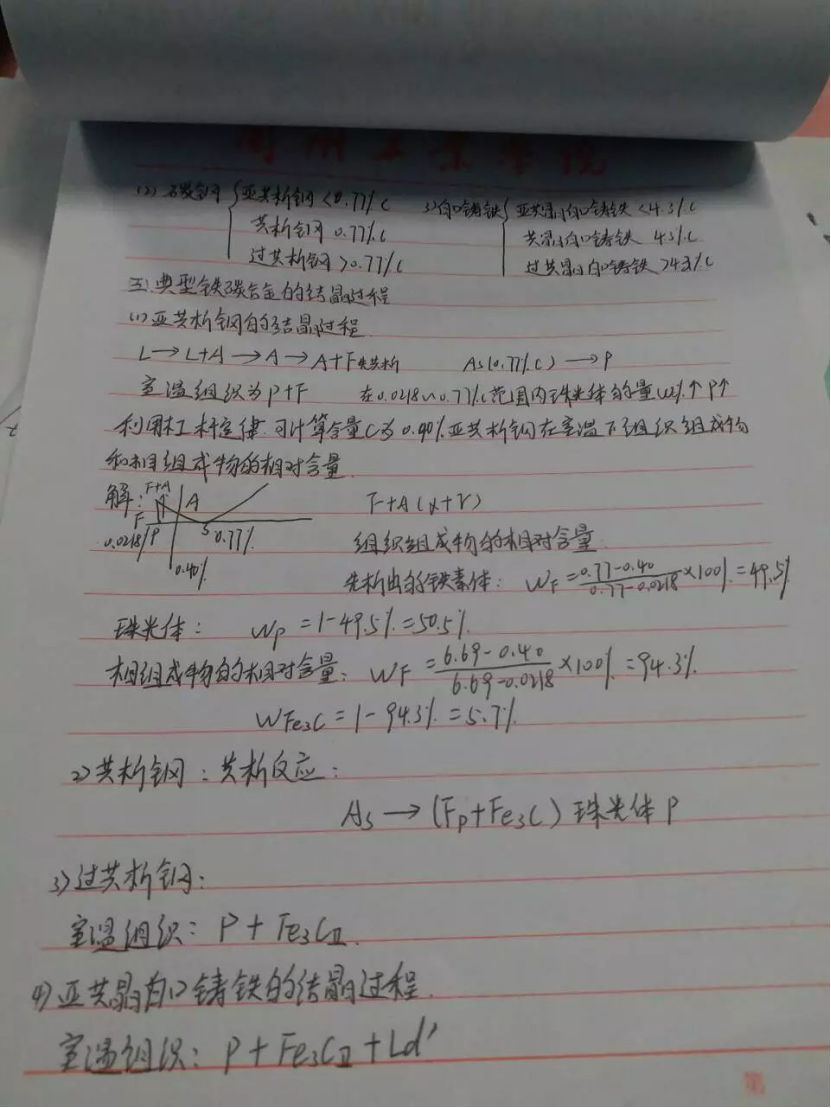 (2) 碳钢 { 亚共析钢 <0.77% C 3) 白口铸铁 { 亚共晶白口铸铁 <4.3% C
共析钢 0.77% C 共晶白口铸铁 4.3% C
过共析钢 >0.77% C 过共晶白口铸铁 >4.3% C
三、典型铁碳合金的结晶过程
(1) 亚共析钢的结晶过程
L→L+A→A→A+F先共析 As(0.77% C)→P
室温组织为P+F 在0.0218~0.77% C范围内珠光体的量 W%↑ P↑
利用杠杆定律可计算含量C为0.40%亚共析钢在室温下组织组成物
和相组成物的相对含量
解: F+A A F+A(α+γ)
F S
0.0218 P 0.77% 组织组成物的相对含量
0.40% 先析出的铁素体: WF=0.77-0.40/0.77-0.0218×100%=49.5%
珠光体: Wp=1-49.5%=50.5%
相组成物的相对含量: WF=6.69-0.40/6.69-0.0218×100%=94.3%
WFe3C=1-94.3%=5.7%
2) 共析钢: 共析反应:
As→(Fp+Fe3C) 珠光体P
3) 过共析钢:
室温组织: P+Fe3CⅡ
4) 亚共晶白口铸铁的结晶过程
室温组织: P+Fe3CⅡ+Ld'
第